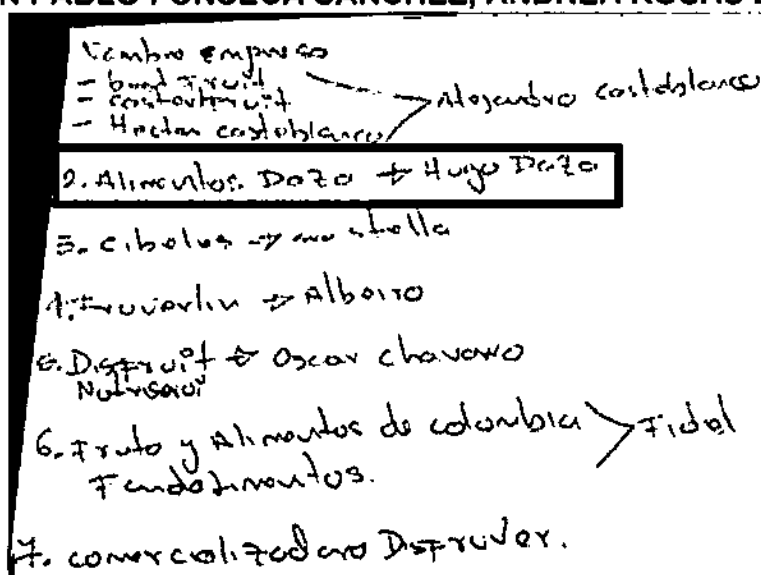 PABLO FONSECA SANCHEZ, ANDREA
Nombre empresa
- bond Fruit
- castor fruit
- Hector castoblanco
Alejandro castoblanco
2. Alimentos Daza → Hugo Daza
3. Cibelus → stella
4. Fruverlin → Albeiro
5. Disfruit → Oscar chavarro
Nutrisavoi
6. Fruto y Alimentos de colombia
Fundalimentos.
Fidel
7. comercializadora Disfruver.